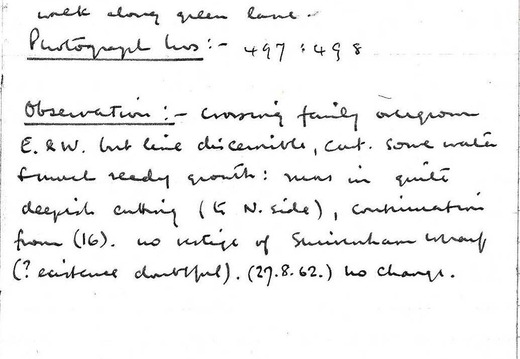 walk along green lane.
Photograph Nos:- 497 : 498
Observation:- Crossing fairly overgrown
E. & W. but line discernible, cut. Some water
& much reedy growth: runs in quite
deepish cutting (to N. side), continuation
from (16). No vestige of Shrivenham Wharf
(? existence doubtful). (27.8.62.) No change.